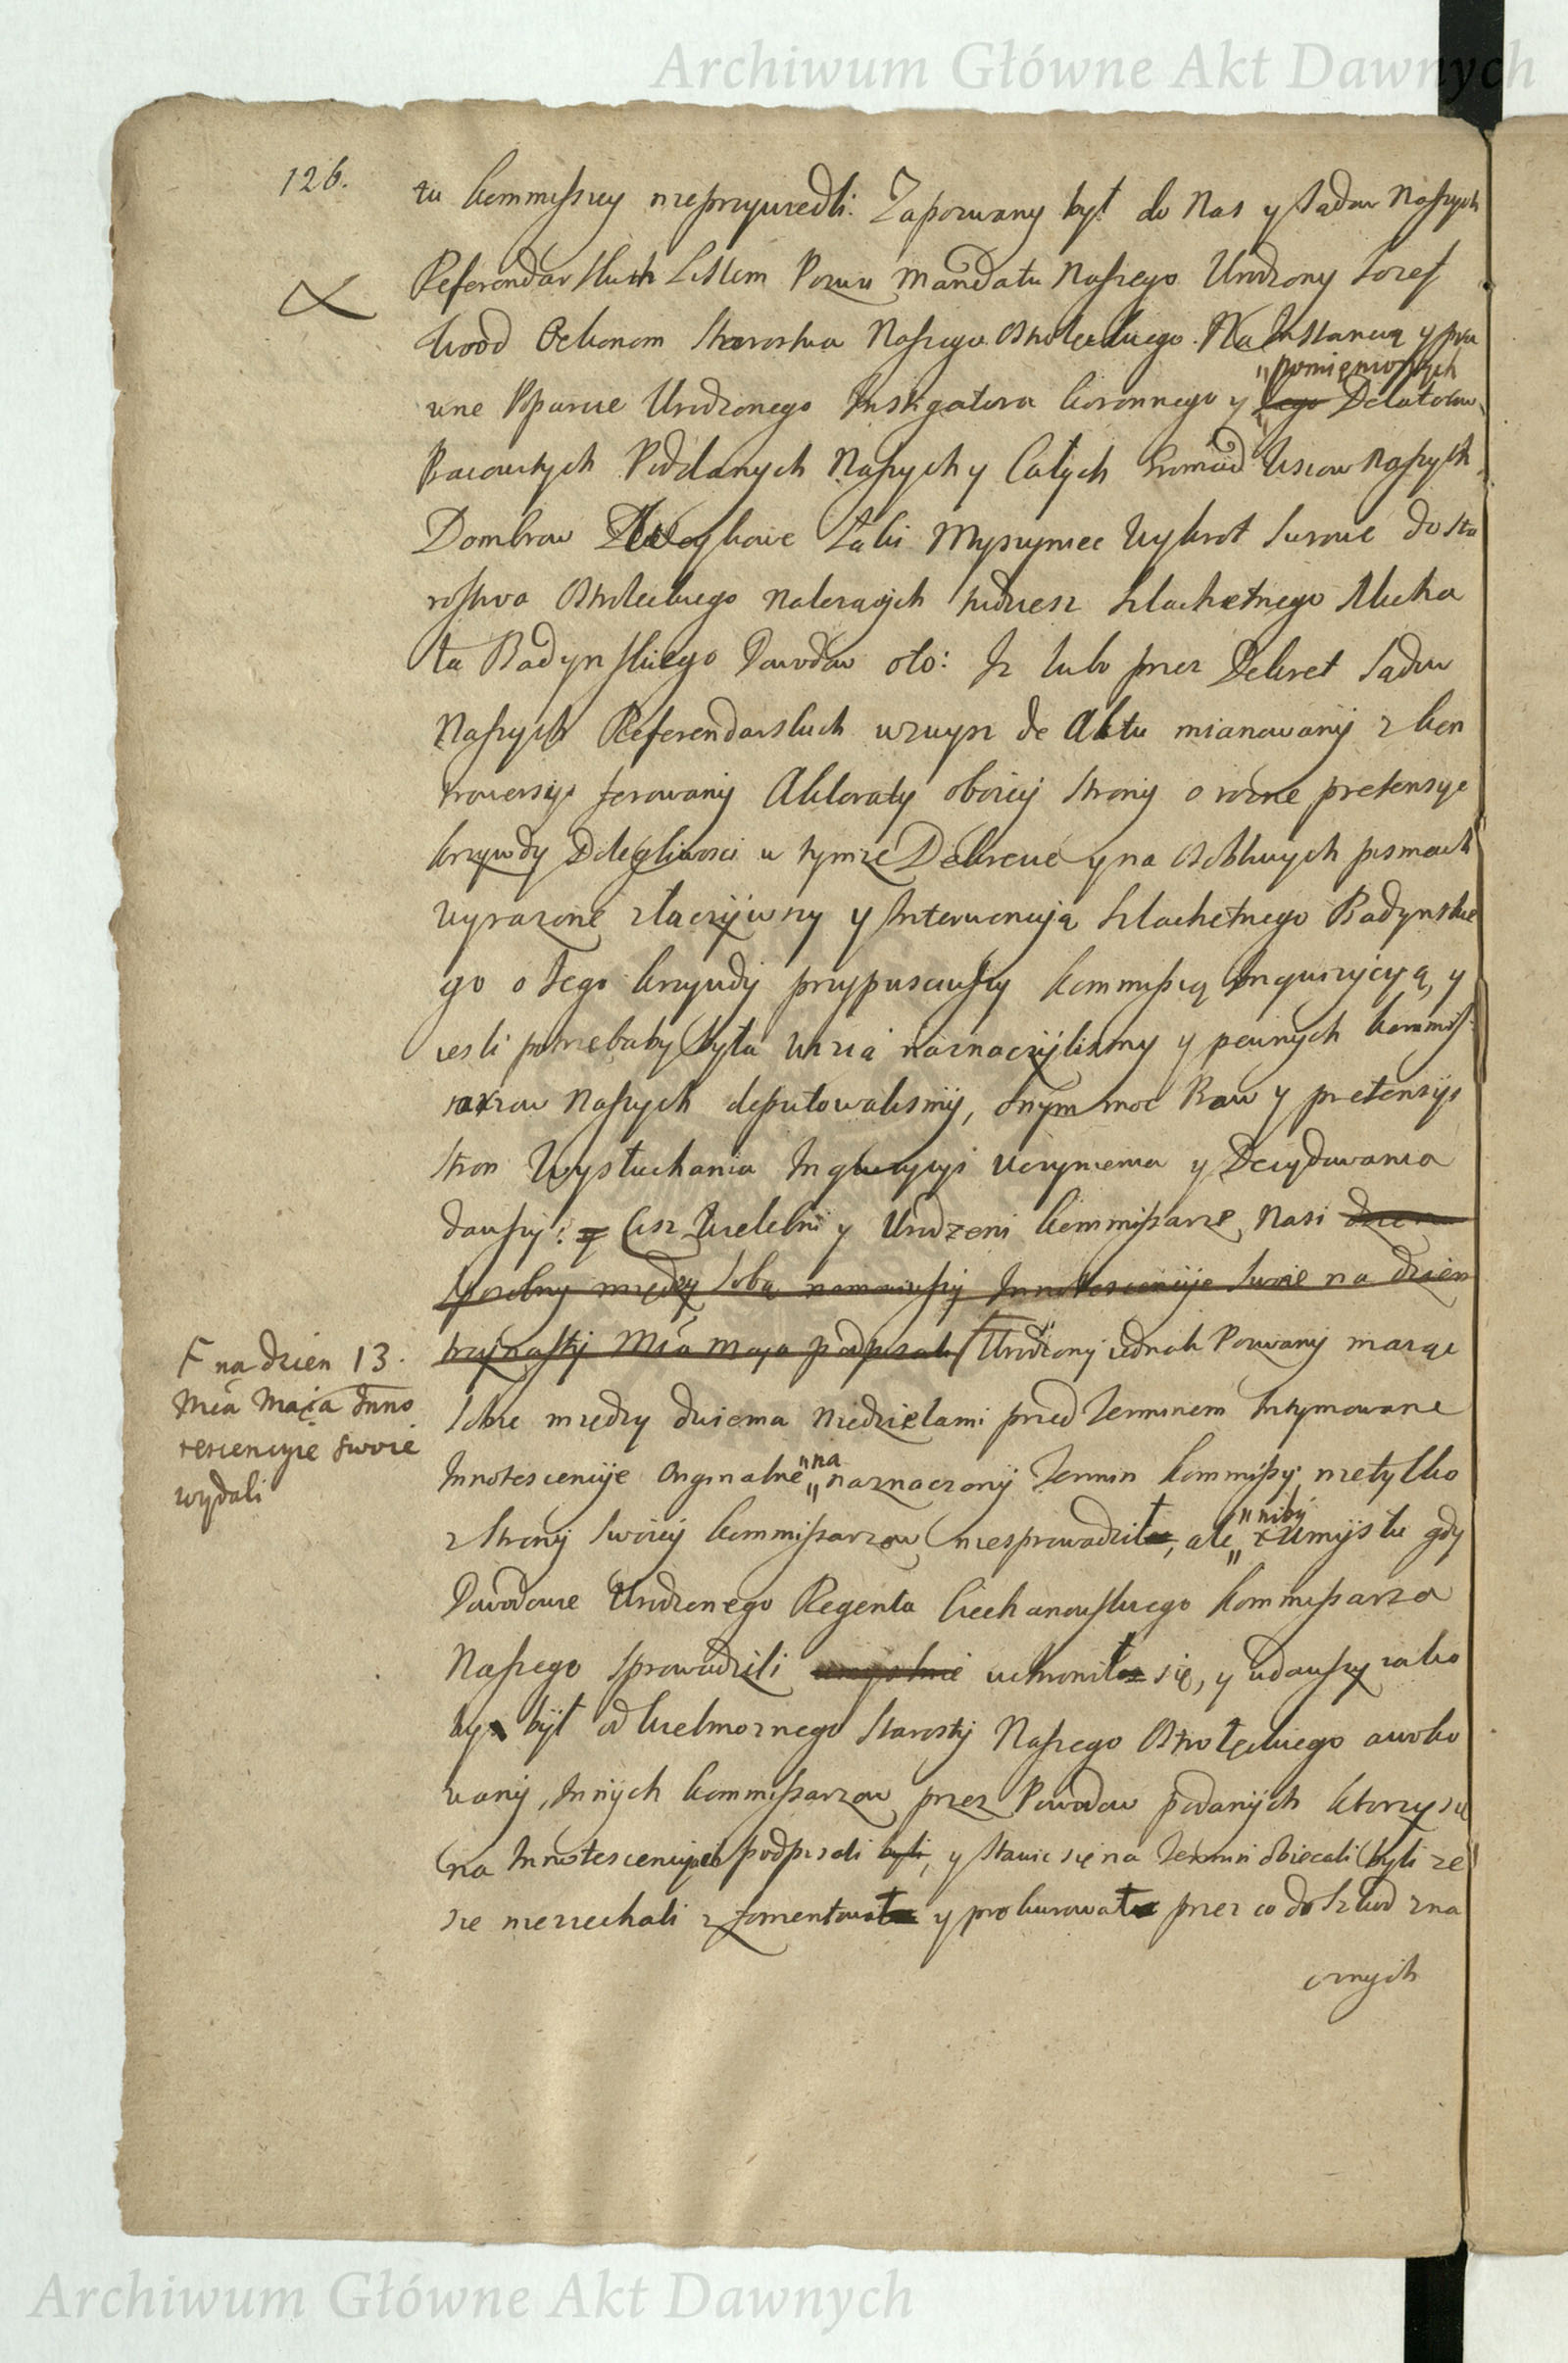 Archiwum Główne Akt Dawnych
126.
tu kommissyey nieprzywiedli. Zapozwany był do Nas y Sądow Naszych
Referendarskich Listem Pozwu Mandatu Naszego Urodzony Jozef
Ekonom Starostwa Naszego Ostrołęckiego. Na Instancyą y pra
wne Poparcie Urodzonego Instygatora koronnego y Jego "pomięnionych Delatorow
Pracowitych Poddanych Naszych y Całych Gromad Wsiow Naszych
Dombrow Zalesie Łaki Myszyniec Wykrot Surowe do Sta
rostwa Ostrołęckiego należących tudziesz Szlachetnego Micha
ła Badynskiego Powodow oto: Iż lubo przez Dekret Sądow
Naszych Referendarskich wzwysz de Aktu mianowany z kon
trowersyi ferowany Aktoraty oboiey strony o rożne pretensye
krzywdy Dolegliwosci w tymże Dekrecie y na osobliwych pismach
wyrażone złączywszy y Interwencyią Szlachetnego Badynskie
go o Jego krzywdy przypusciwszy kommissią Inquizycyą, y
iesli potrzebaby była Wizią naznaczylismy y pewnych kommiss
sarzow Naszych deputowalismy, onym moc Praw y pretensyi
stron Wysłuchania Inquizycyi uczynienia y Decydowania
dawszy: Cisz Wielebni y Urodzeni kommissarze Nasi
sposobny między sobą namowiwszy Innotescencyie swoie na dzien
trzynasty Mca Maja podpisali Urodzony iednak Pozwany maiąc
F na dzien 13.
Mca Maia Inno
tescencyie swoie
wydali
sobie między dwiema Niedzielami przed Terminem Intymowane
Innotescencyie Originalne "na naznaczony Termin kommissyi nietylko
z strony swoiey kommissarzow niesprowadził, ale "niby z umysłu gdy
Powodowie Urodzonego Regenta Ciechanowskiego kommissarza
Naszego sprowadzili umyslnie uchronił się, y udawszy iako
by był od Wielmożnego Starosty Naszego Ostrołęckiego awoko
wany, Innych kommissarzow przez Powodow podanych ktorzy się
na Innotescencyiach podpisali byli, y stawic się na Termin obiecali byli że
sie nieziechali z fomentował y prokurował przez co do Szkod zna
cznych
Archiwum Główne Akt Dawnych